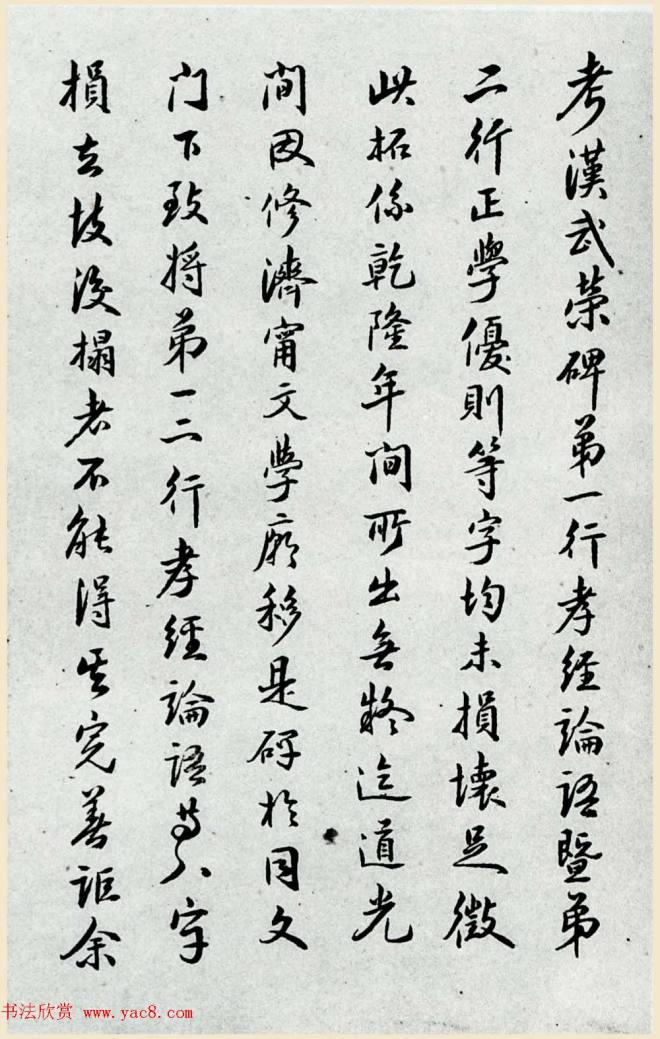 考漢武榮碑弟一行孝經論語暨弟
二行正學優則等字均未損壞足徵
此拓係乾隆年間所出無疑迄道光
間因修濟甯文學廟移是碑於同文
門下致將弟一二行孝經論語等八字
損去故後搨者不能得其完善詎余
书法欣赏 www.yac8.com